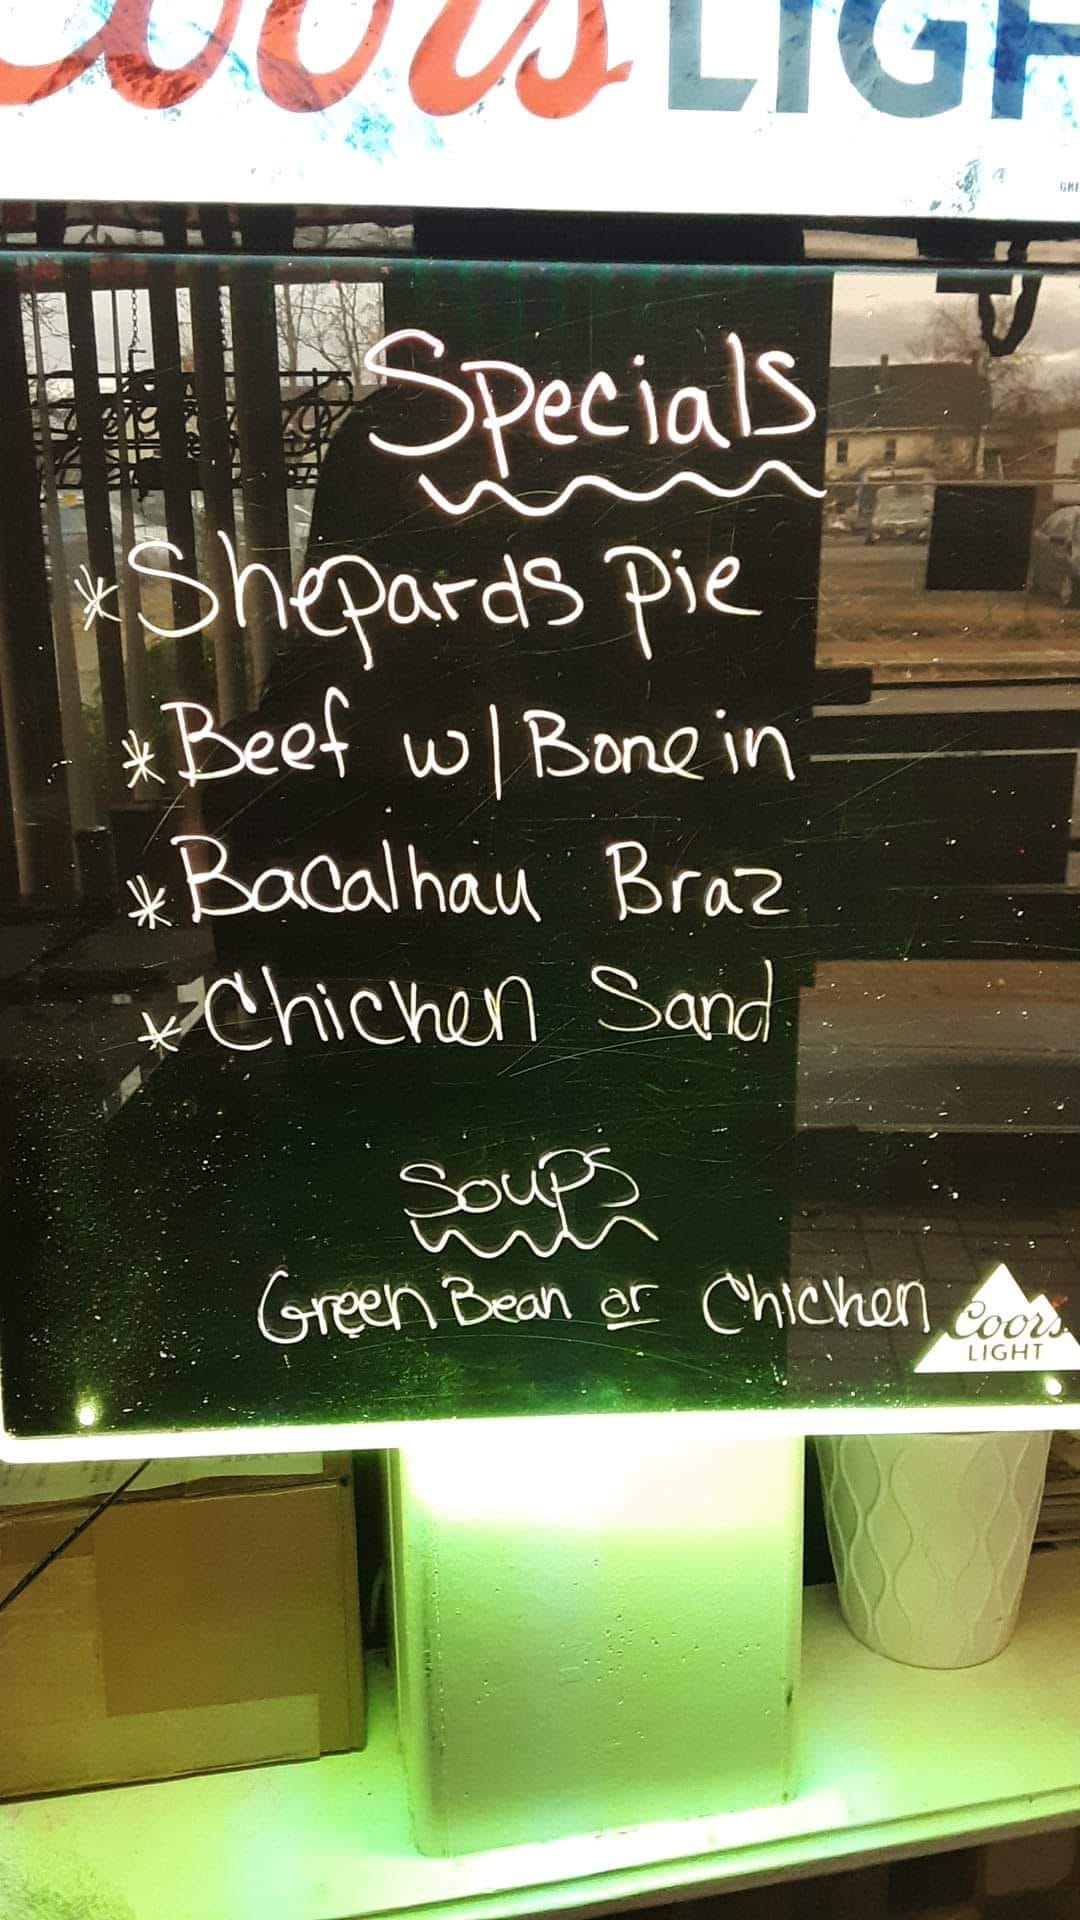 Coors LIGH
Specials
* Shepards Pie
* Beef w/ Bone in
* Bacalhau Braz
* Chicken Sand
Soups
Green Bean or Chicken
Coors
LIGHT